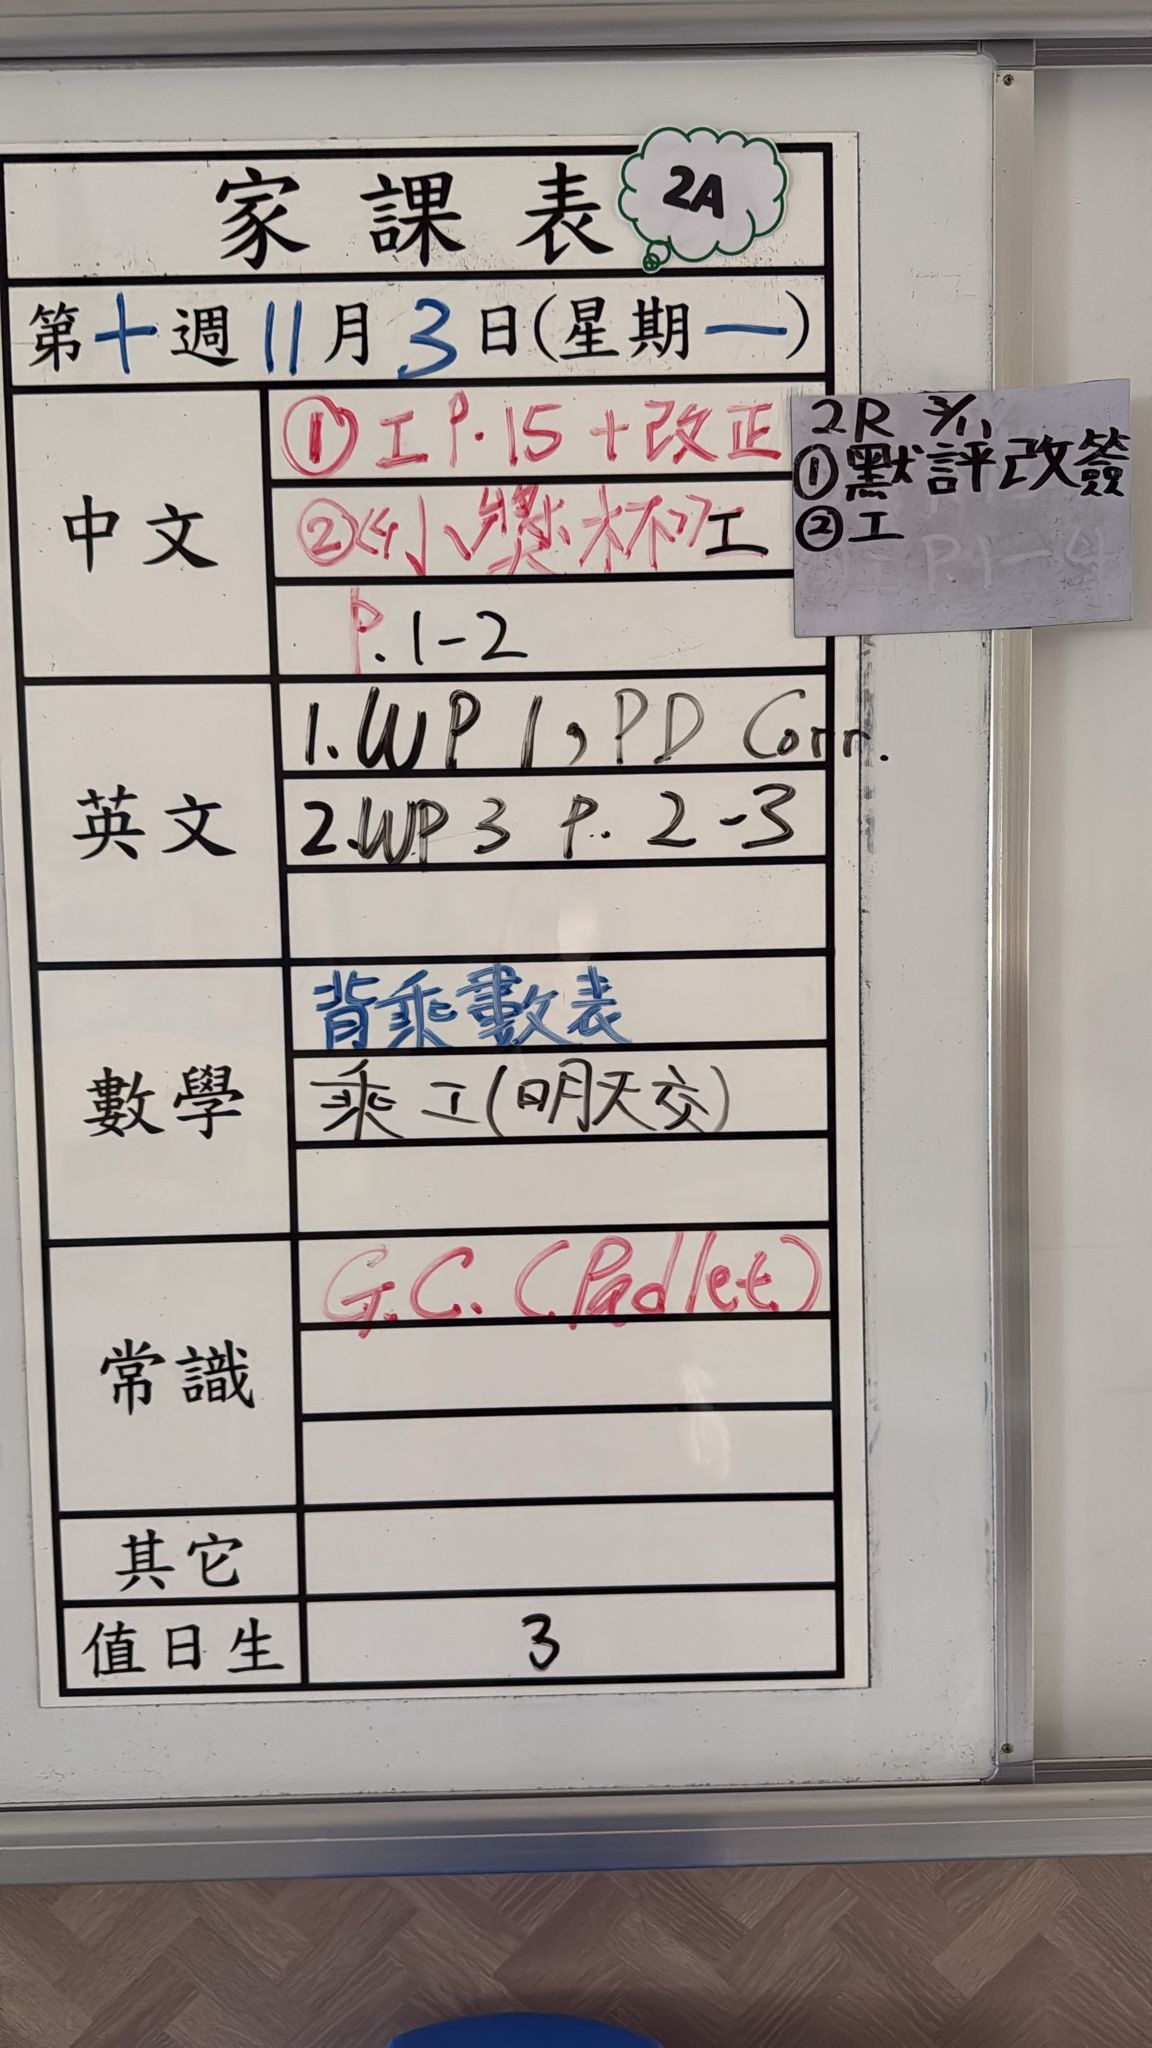 家課表 2A
第十週11月3日(星期一)
中文
① 工 P.15 + 改正
②《小獎杯》工
P.1-2
2R 3/11
①默評改簽
②工
P.1-4
英文
1.WP 1, PD Corr.
2.WP 3 P. 2-3
數學
背乘數表
乘工(明天交)
常識
G.C. (Padlet)
其它
值日生
3